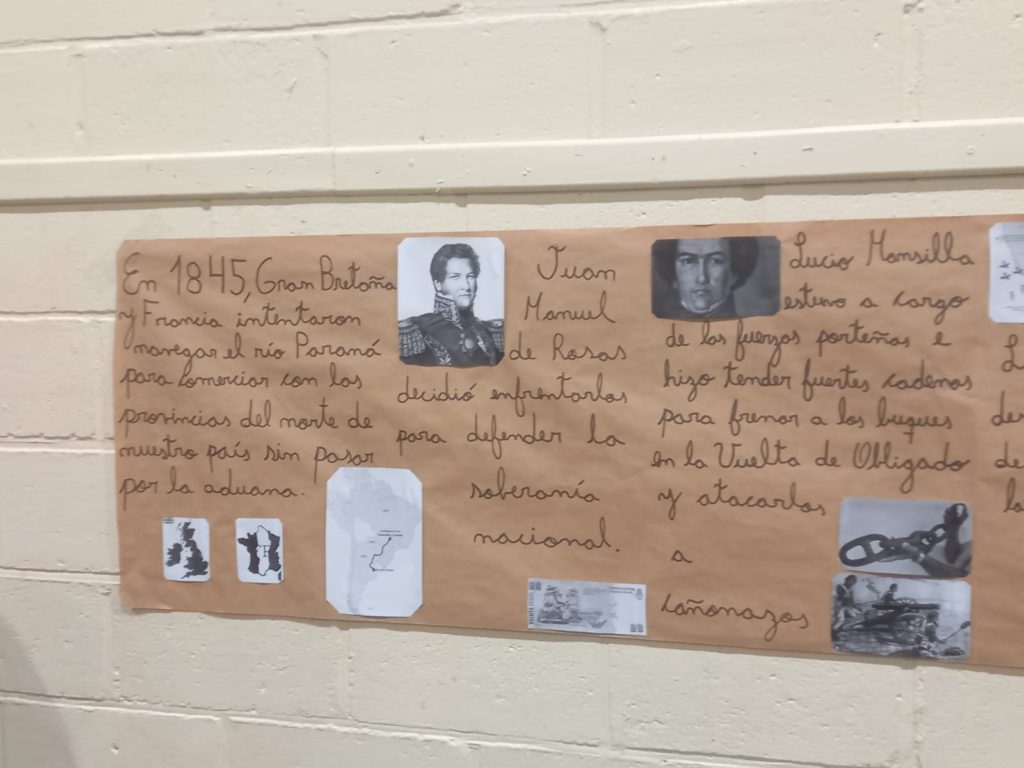 En 1845, Gran Bretaña
y Francia intentaron
navegar el río Paraná
para comerciar con las
provincias del norte de
nuestro país sin pasar
por la aduana.
Juan
Manuel
de Rosas
decidió enfrentarlos
para defender la
soberanía
nacional.
20
20
Lucio Mansilla
estuvo a cargo
de las fuerzas porteñas e
hizo tender fuertes cadenas
para frenar a los buques
en la Vuelta de Obligado
y atacarlos
a
cañonazos
L
de